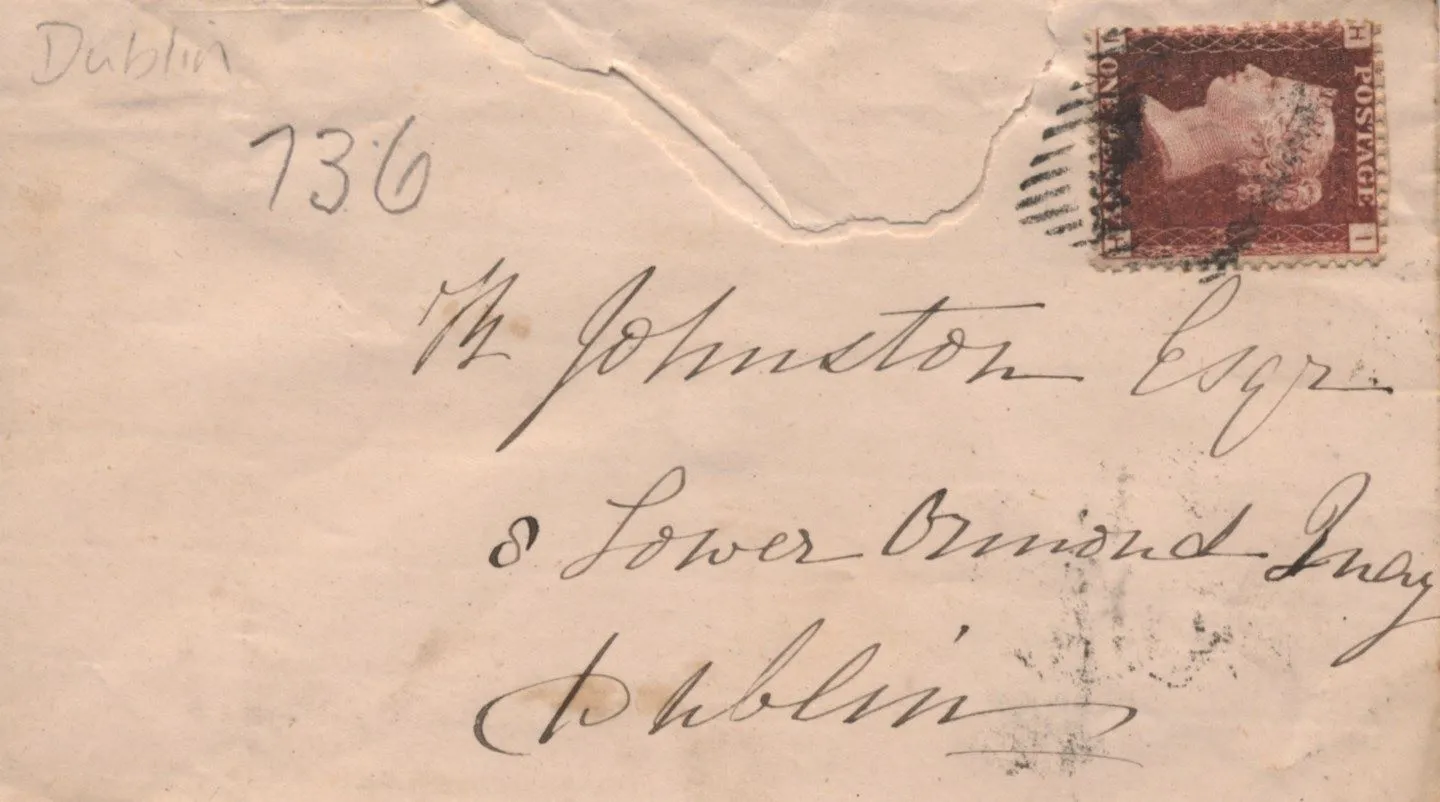 Dublin
136
POSTAGE
ONE PENNY
H
I
I
H
Johnston Esqr
8 Lower Ormond Quay
Dublin